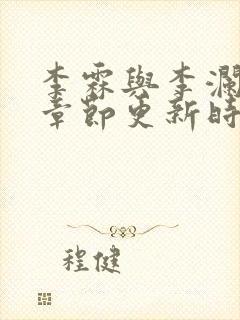 李霖與李瀾
章節更新時
程健